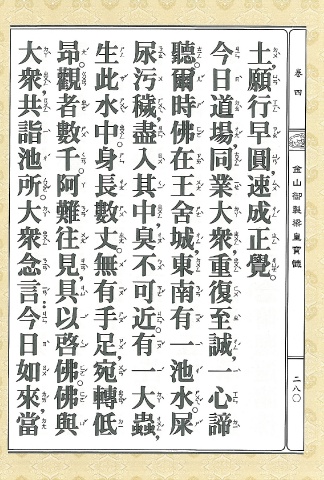 土。願行早圓。速成正覺。
今日道場。同業大衆。重復至誠。一心諦
聽。爾時佛在王舍城東南有一池水。屎
尿污穢。盡入其中。臭不可近。有一大蟲。
生此水中。身長數丈。無有手足。宛轉低
昂。觀者數千。阿難往見。具以啓佛。佛與
大衆共詣池所。大衆念言。今日如來當
卷四
金山御製梁皇寶懺
二八〇